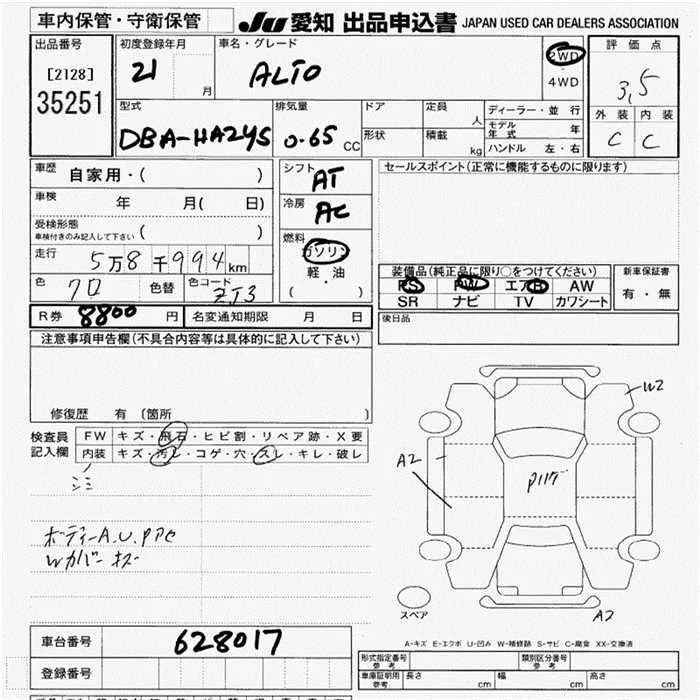 車内保管・守衛保管 JU 愛知 出品申込書 JAPAN USED CAR DEALERS ASSOCIATION
出品番号 初度登録年月 車名・グレード 2WD 評価点
[2128] 21 月 ALTO 4WD 3,5
35251 外装 内装
型式 排気量 ドア 定員 人 ディーラー・並行 C C
DBA-HA24S 0.65 CC 形状 積載 kg モデル年式 年
ハンドル 左・右
車歴 自家用・( ) シフト AT セールスポイント(正常に機能するものに限ります)
車検 年 月( 日) 冷房 AC
受検形態 ( )
車検付きのみ記入して下さい
燃料 ガソリン
走行 5万8千994km 軽・油 装備品(純正品に限り○をつけてください) 新車保証書
色 クロ 色替 色コード ZJ3 ( ) PS PW エアB AW 有・無
SR ナビ TV カワシート
R券 8800 円 名変通知期限 月 日 後日品
注意事項申告欄(不具合内容等は具体的に記入して下さい)
修復歴 有 〔箇所 〕
検査員記入欄 FW キズ・飛石・ヒビ割・リペア跡・X要
内装 キズ・汚レ・コゲ・穴・スレ・キレ・破レ
シミ
ボディーA.U.
Wカバー キズ
W2
A2
A2
スペア
A-キズ E-エクボ U-凹み W-補修跡 S-サビ C-腐食 XX-交換済
車台番号 628017
登録番号
形式指定番号 参考 類別区分番号 参考
車庫証明用 参考 長さ cm 幅 cm 高さ cm